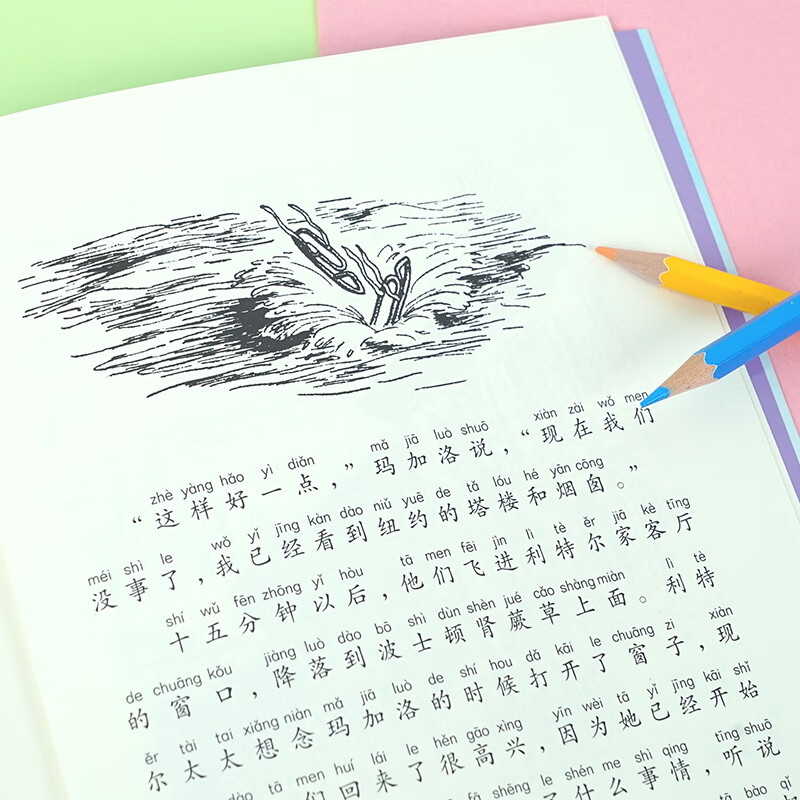 zhè yàng hǎo yì diǎn mǎ jiā luò shuō xiàn zài wǒ men
“这样好一点，”玛加洛说，“现在我们
méi shì le wǒ yǐ jīng kàn dào niǔ yuē de tǎ lóu hé yān cōng
没事了，我已经看到纽约的塔楼和烟囱。”
shí wǔ fēn zhōng yǐ hòu tā men fēi jìn lì tè ěr jiā kè tīng
十五分钟以后，他们飞进利特尔家客厅
de chuāng kǒu jiàng luò dào bō shì dùn shèn jué cǎo shàng miàn lì tè
的窗口，降落到波士顿肾蕨草上面。利特
ěr tài tai xiǎng niàn mǎ jiā luò de shí hou dǎ kāi le chuāng zi xiàn
尔太太想念玛加洛的时候打开了窗子，现
dào tā men huí lái le hěn gāo xìng yīn wèi tā yǐ jīng kāi shǐ
们回来了很高兴，因为她已经开始
fā shēng le shén me shì qing tīng shuō
了什么事情，听说
tā bào qǐ